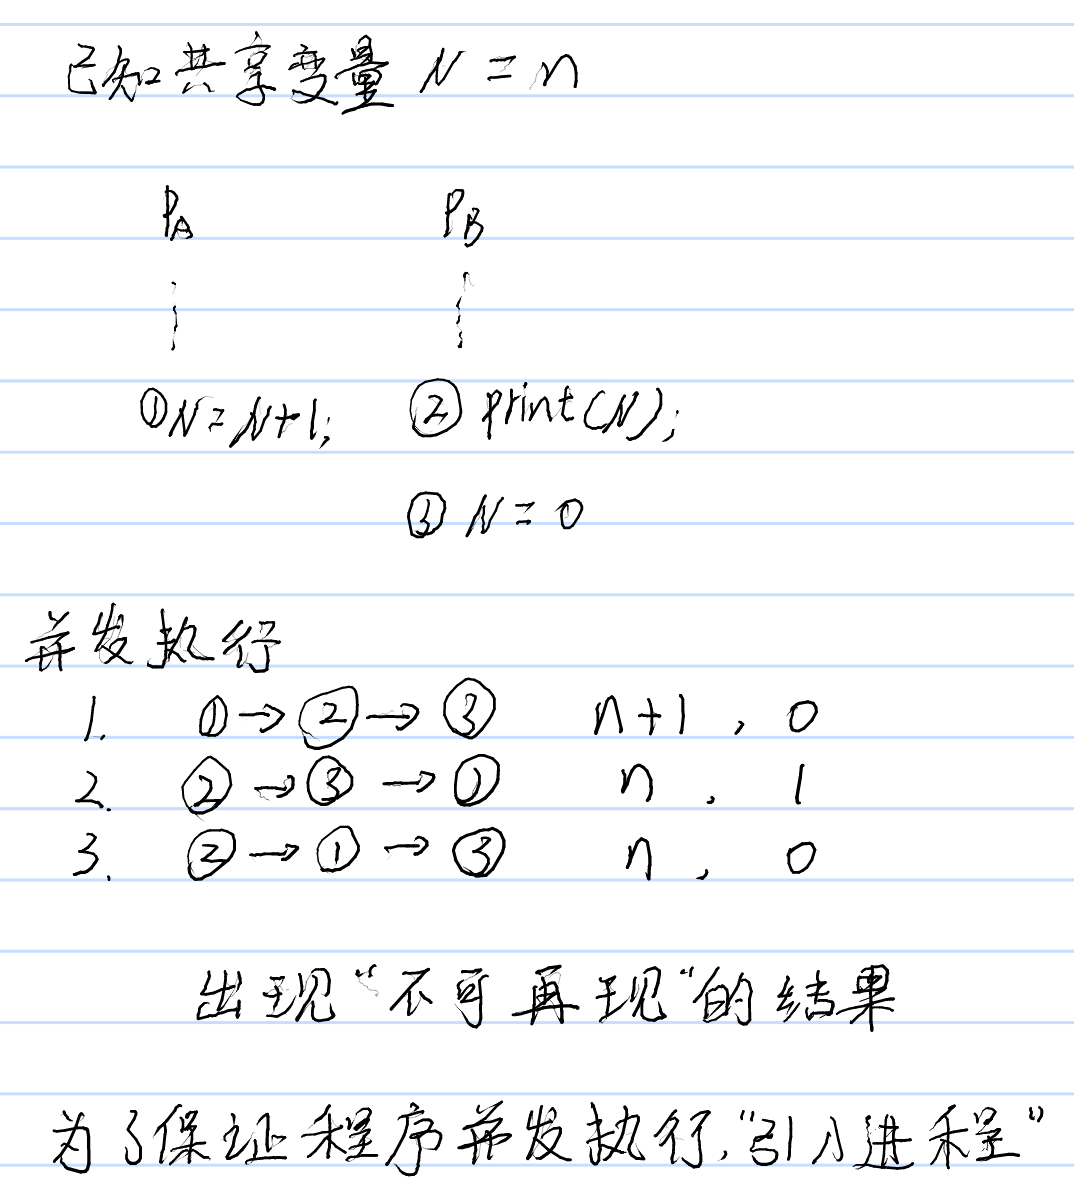 已知共享变量 N = n
PA PB
①N=N+1; ② print(N);
③ N = 0
并发执行
1. ①→②→③ n+1 , 0
2. ②→③→① n , 1
3. ②→①→③ n , 0
出现“不可再现“的结果
为了保证程序并发执行,“引入进程”